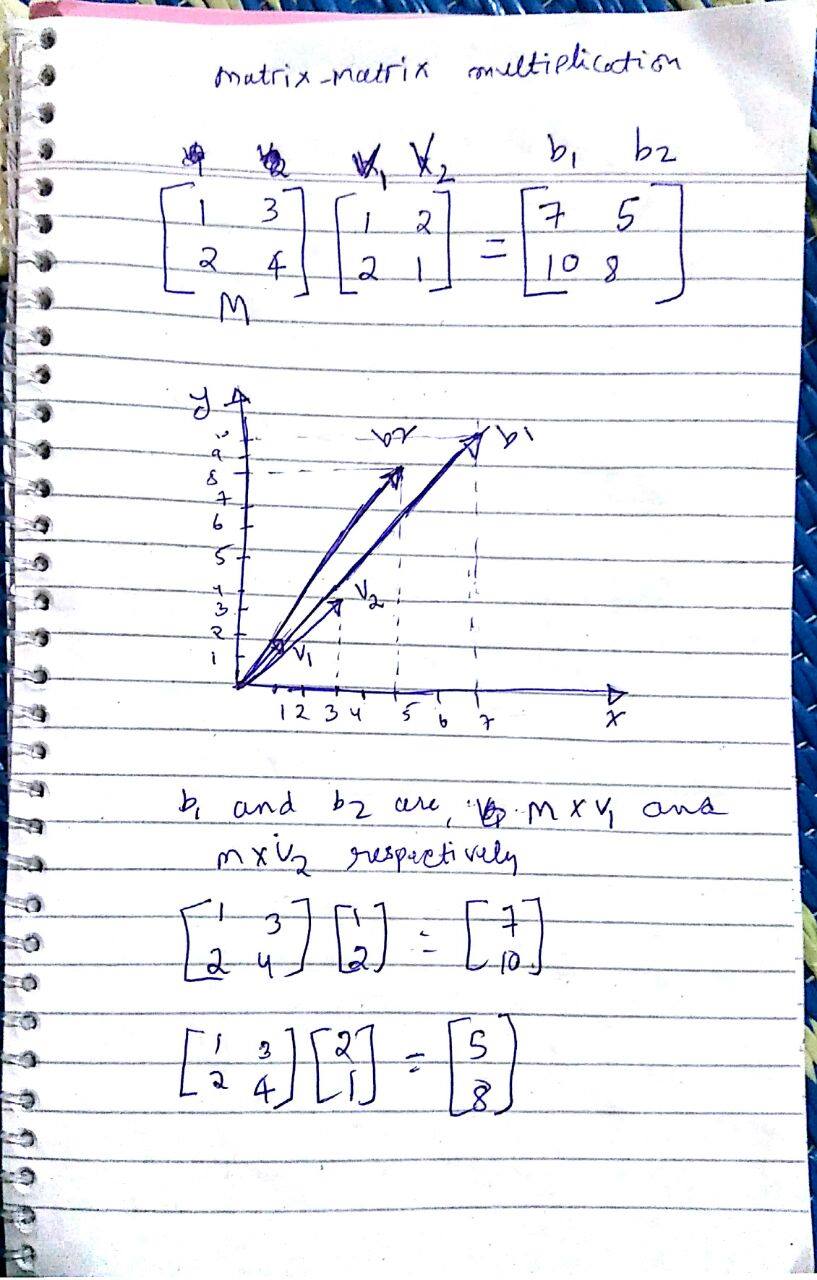 matrix-matrix multiplication
V1 V2 b1 b2
[1 3 [1 2 = [7 5
2 4] 2 1] 10 8]
M
y
10
9
8
7
6
5
4
3
2
1
b2
b1
V2
V1
1 2 3 4 5 6 7
x
b1 and b2 are, M x V1 and
M x V2 respectively
[1 3 [1 = [7
2 4] 2] 10]
[1 3 [2 = [5
2 4] 1] 8]